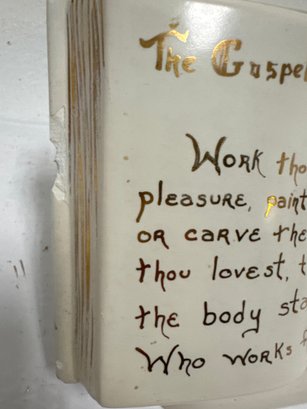 The Gospel
Work tho
pleasure, paint
or carve the
thou lovest, t
the body sta
Who works f